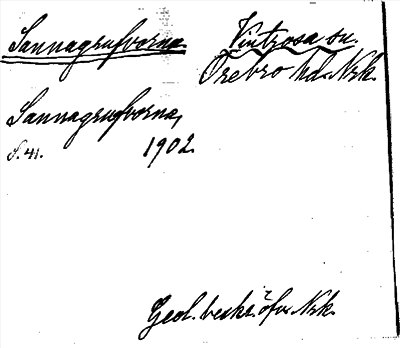 Sannagrufvorna.
Vintrosa sn.
Örebro hd. Nrk.
Sannagrufvorna,
S. 41.
1902.
Geol. beskr. öfver Nrk.